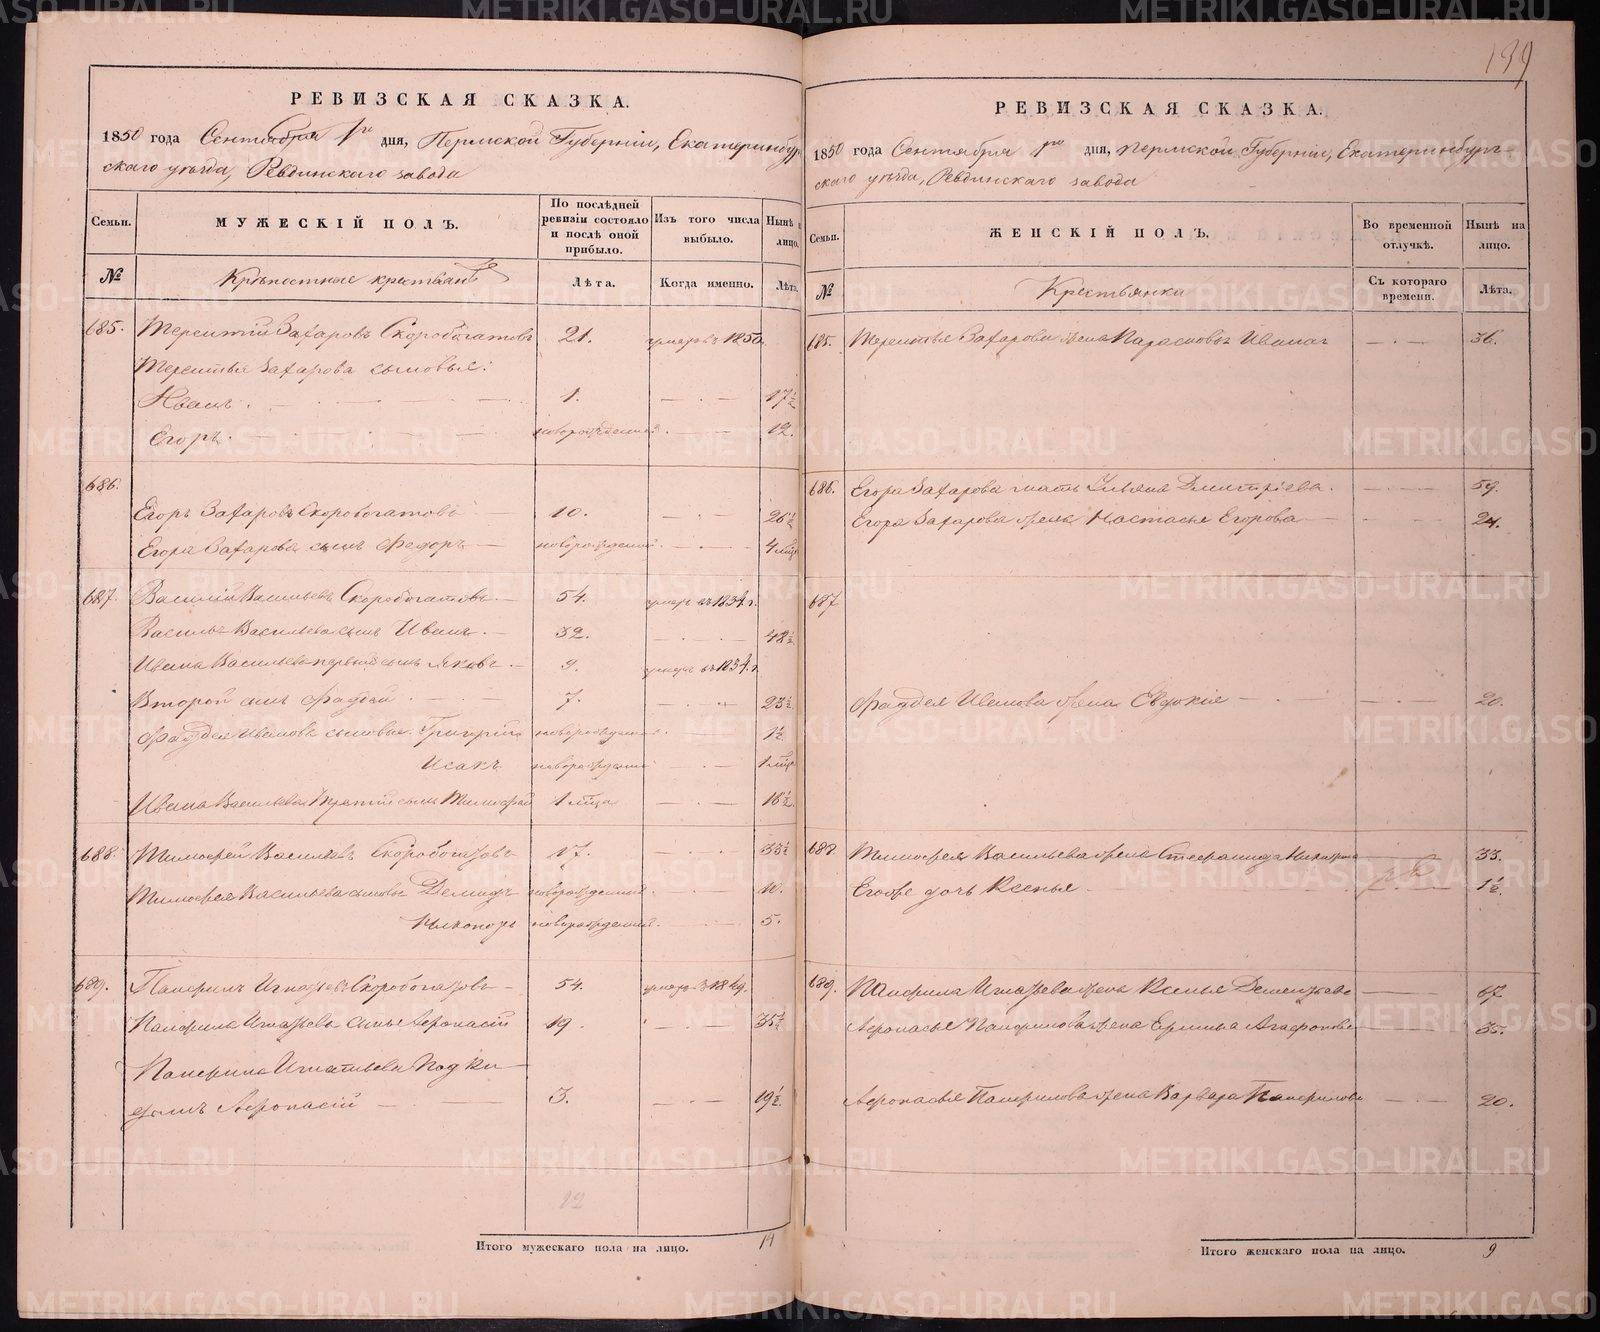 139
РЕВИЗСКАЯ СКАЗКА.
1850 года Сентября 1го дня, Пермской Губернiи, Екатеринбург
скаго уѣзда, Ревдинскаго завода
Семьи.
МУЖЕСКIЙ ПОЛЪ.
По послѣдней ревизiи состояло и послѣ оной прибыло.
Изъ того числа выбыло.
Нынѣ лицо.
№
Крѣпостные крестьяне
Лѣта.
Когда именно.
Лѣта.
685. Терентiй Захаровъ Скоробогатовъ 21. умеръ въ 1850
Терентья Захарова сыновья:
Иванъ. 1. 17½
Егоръ. новорожденный. 12.
686.
Егоръ Захаровъ Скоробогатовъ 10. 26½
Егора Захарова сынъ Федоръ новорожденный 4 мѣс
687. Василiй Васильевъ Скоробогатовъ. 54. умеръ въ 1834 г.
Василья Васильева сынъ Иванъ. 32. 48½
Ивана Васильева первый сынъ Яковъ. 9. умеръ въ 1834 г.
Второй сынъ Фаддей 7. 23½
Фаддея Иванова сыновья Григорiй новорожденный 1½
Исакъ новорожденный 1 мѣс
Ивана Васильева третiй сынъ Тимофей 1 мѣсяца 16½
688. Тимофей Васильевъ Скоробогатовъ 17. 33½
Тимофея Васильева сыновья Демидъ новорожденный 10.
Никаноръ новорожденный. 5.
689. Панфилъ Игнатьевъ Скоробогатовъ 54. умеръ въ 1849.
Панфила Игнатьева сынъ Афонасiй 19. 35½
Панфила Игнатьева Подки-
дышъ Афонасiй 3. 19½
12
Итого мужескаго пола на лицо. 14
РЕВИЗСКАЯ СКАЗКА.
1850 года Сентября 1го дня, Пермской Губернiи, Екатеринбург-
скаго уѣзда, Ревдинскаго завода
Семьи.
ЖЕНСКIЙ ПОЛЪ.
Во временной отлучкѣ.
Нынѣ на лицо.
№
Крестьянки
Съ котораго времени.
Лѣта.
685. Терентья Захарова жена Парасковья Иванова 36.
686. Егора Захарова мать Ульяна Дмитрiева. 59.
Егора Захарова жена Настасья Егорова 24.
687
Фаддея Иванова жена Евдокiя 20.
688. Тимофея Васильева жена Стефанида 33.
Егоже дочь Ксенья 1½.
689. Панфила Игнатьева жена Ксенья Дементьева 67
Афонасья Панфилова жена Ефимья Агафонова 35.
Афонасiя Панфилова жена Варвара Панфилова 20.
Итого женскаго пола на лицо. 9
METRIKI.GASO-URAL.RU